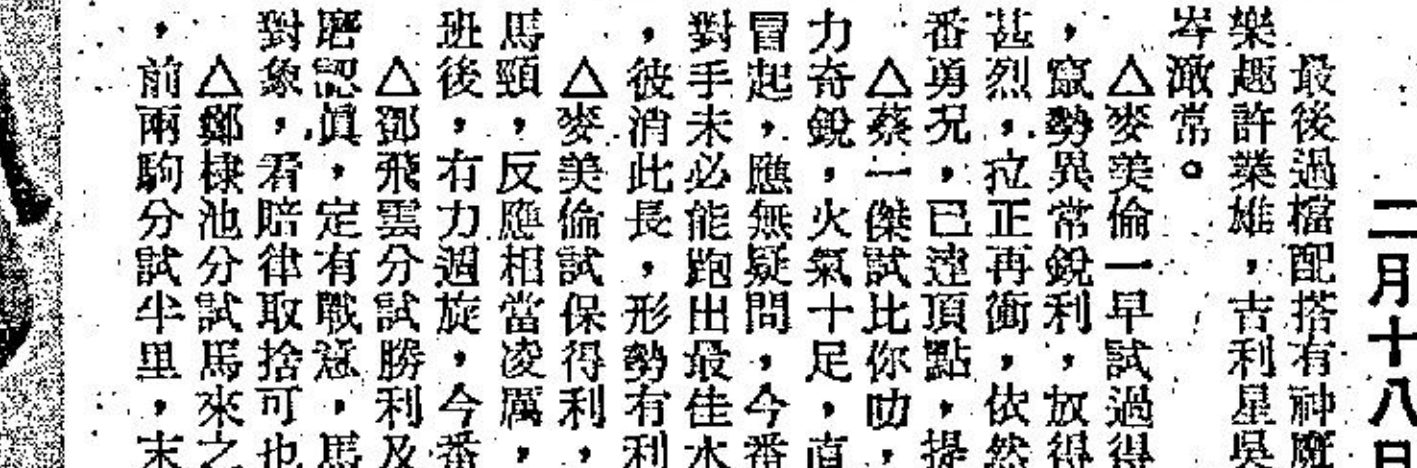 二月十八日
最後過檔配搭有神魔
樂趣許業雄，吉利星吳
岑澈常。
△麥美倫一早試過得
，竄勢異常銳利，放得
甚烈，立正再衝，依然
番勇況，已達頂點，提
△蔡一傑試比你叻，
力奇銳，火氣十足，直
冒起，應無疑問，今番
對手未必能跑出最佳水
，彼消此長，形勢有利
△麥美倫試保得利，
馬頸，反應相當凌厲，
班後，有力週旋，今番
△鄧飛雲分試勝利及
磨認眞，定有戰意，馬
對象，看賠律取捨可也
△鄭棣池分試馬來之
，前兩駒分試半里，末